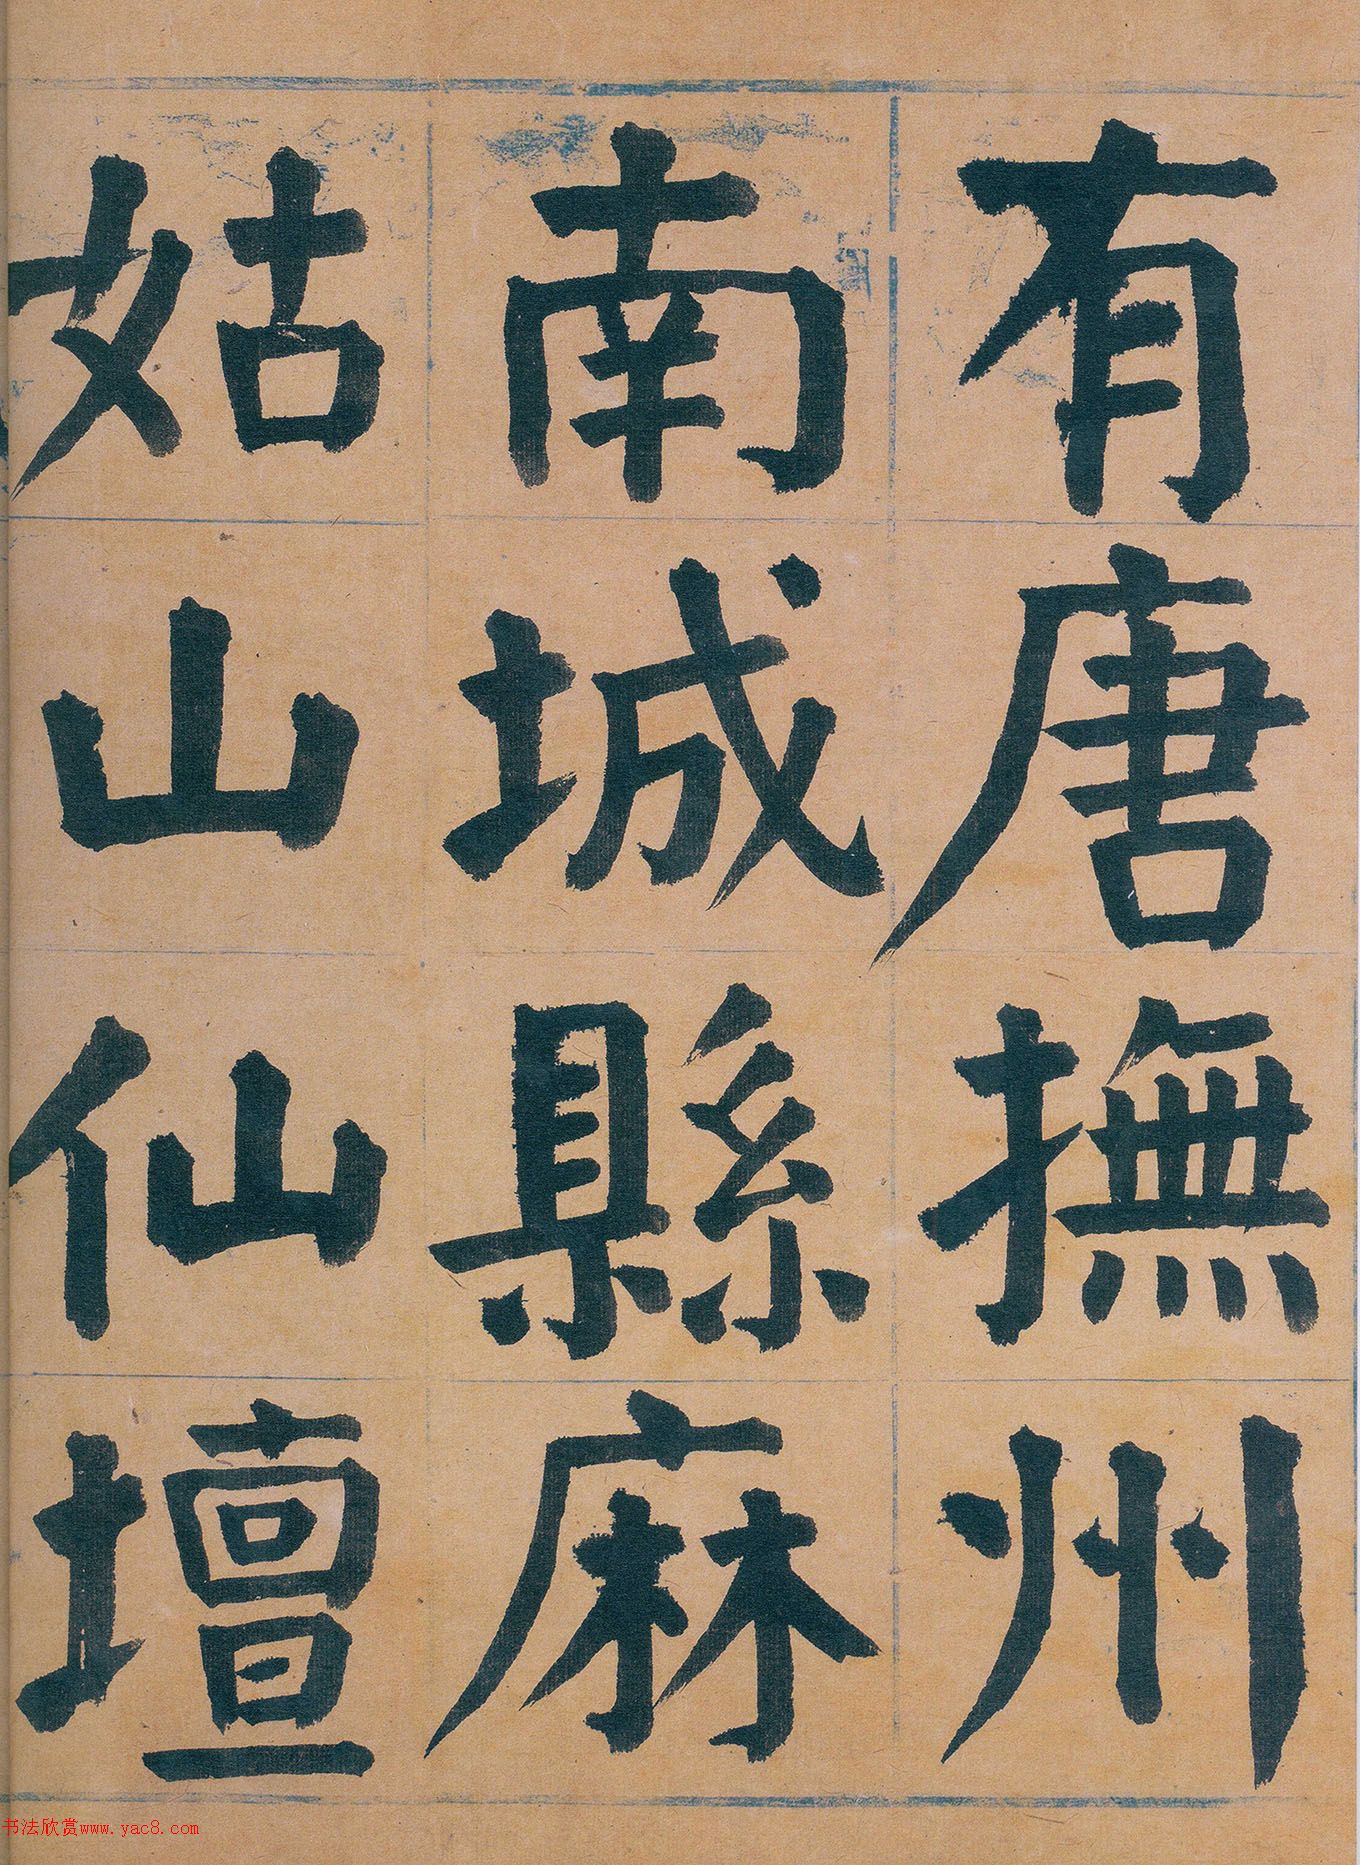 有唐撫州
南城縣麻
姑山仙壇
书法欣赏www.yac8.com